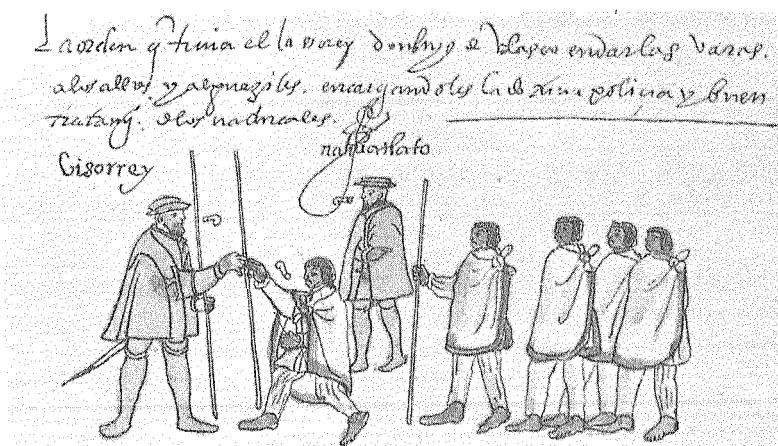 La orden q̃ tenia el visorrey don luys de Velasco en dar las varas.
a los alldes y alguaziles. encargandoles la policia y buen
de los naturales.
Visorrey
nahuatlato